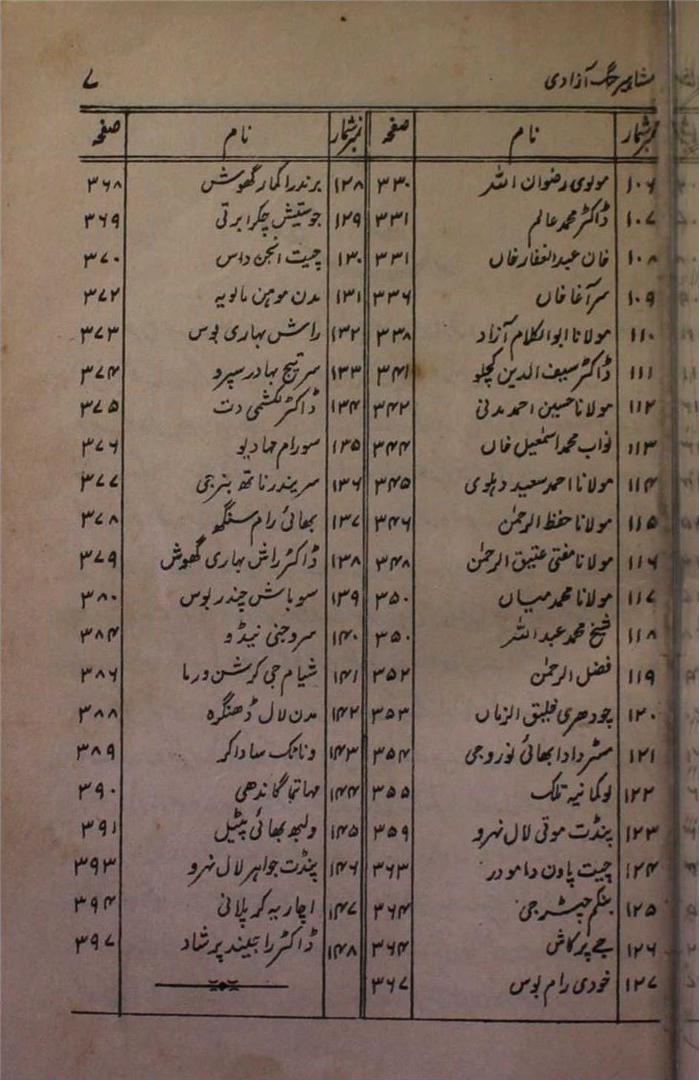 مشاہیر جنگ آزادی ۷
نمبر شمار نام صفحہ نمبر شمار نام صفحہ
۱۰۶ مولوی رضوان اللہ ۳۳۰
۱۰۷ ڈاکٹر محمد عالم ۳۳۱
۱۰۸ خان عبدالغفار خاں ۳۳۱
۱۰۹ سر آغا خاں ۳۳۶
۱۱۰ مولانا ابوالکلام آزاد ۳۳۸
۱۱۱ ڈاکٹر سیف الدین کچلو ۳۴۱
۱۱۲ مولانا حسین احمد مدنی ۳۴۲
۱۱۳ نواب محمد اسمٰعیل خاں ۳۴۴
۱۱۴ مولانا احمد سعید دہلوی ۳۴۵
۱۱۵ مولانا حفظ الرحمٰن ۳۴۶
۱۱۶ مولانا مفتی عتیق الرحمٰن ۳۴۸
۱۱۷ مولانا محمد میاں ۳۵۰
۱۱۸ شیخ محمد عبداللہ ۳۵۰
۱۱۹ فضل الرحمٰن ۳۵۲
۱۲۰ چودھری خلیق الزماں ۳۵۳
۱۲۱ مسٹر دادا بھائی نوروجی ۳۵۴
۱۲۲ لوکمانیہ تلک ۳۵۵
۱۲۳ پنڈت موتی لال نہرو ۳۵۹
۱۲۴ چیت پاون دامودر ۳۶۳
۱۲۵ بنکم چیٹرجی ۳۶۴
۱۲۶ جے پرکاش ۳۶۴
۱۲۷ خودی رام بوس ۳۶۷
۱۲۸ برندرا کمار گھوش ۳۶۸
۱۲۹ جوستیش چکرابرتی ۳۶۹
۱۳۰ چیت انجن داس ۳۷۰
۱۳۱ مدن موہن مالویہ ۳۷۲
۱۳۲ راش بہاری بوس ۳۷۳
۱۳۳ سر تیج بہادر سپرو ۳۷۴
۱۳۴ ڈاکٹر لکشمی دت ۳۷۵
۱۳۵ سورام مہادیو ۳۷۶
۱۳۶ سریندر ناتھ بنرجی ۳۷۷
۱۳۷ بھائی رام سنگھ ۳۷۸
۱۳۸ ڈاکٹر راش بہاری گھوش ۳۷۹
۱۳۹ سوباش چندر بوس ۳۸۰
۱۴۰ سروجنی نیڈو ۳۸۴
۱۴۱ شیام جی کرشن ورما ۳۸۶
۱۴۲ مدن لال ڈھنگرہ ۳۸۸
۱۴۳ ونائک ساداکر ۳۸۹
۱۴۴ مہاتما گاندھی ۳۹۰
۱۴۵ ولبھ بھائی پٹیل ۳۹۱
۱۴۶ پنڈت جواہر لال نہرو ۳۹۳
۱۴۷ اچاریہ کرپلانی ۳۹۴
۱۴۸ ڈاکٹر راجیندر پرشاد ۳۹۷